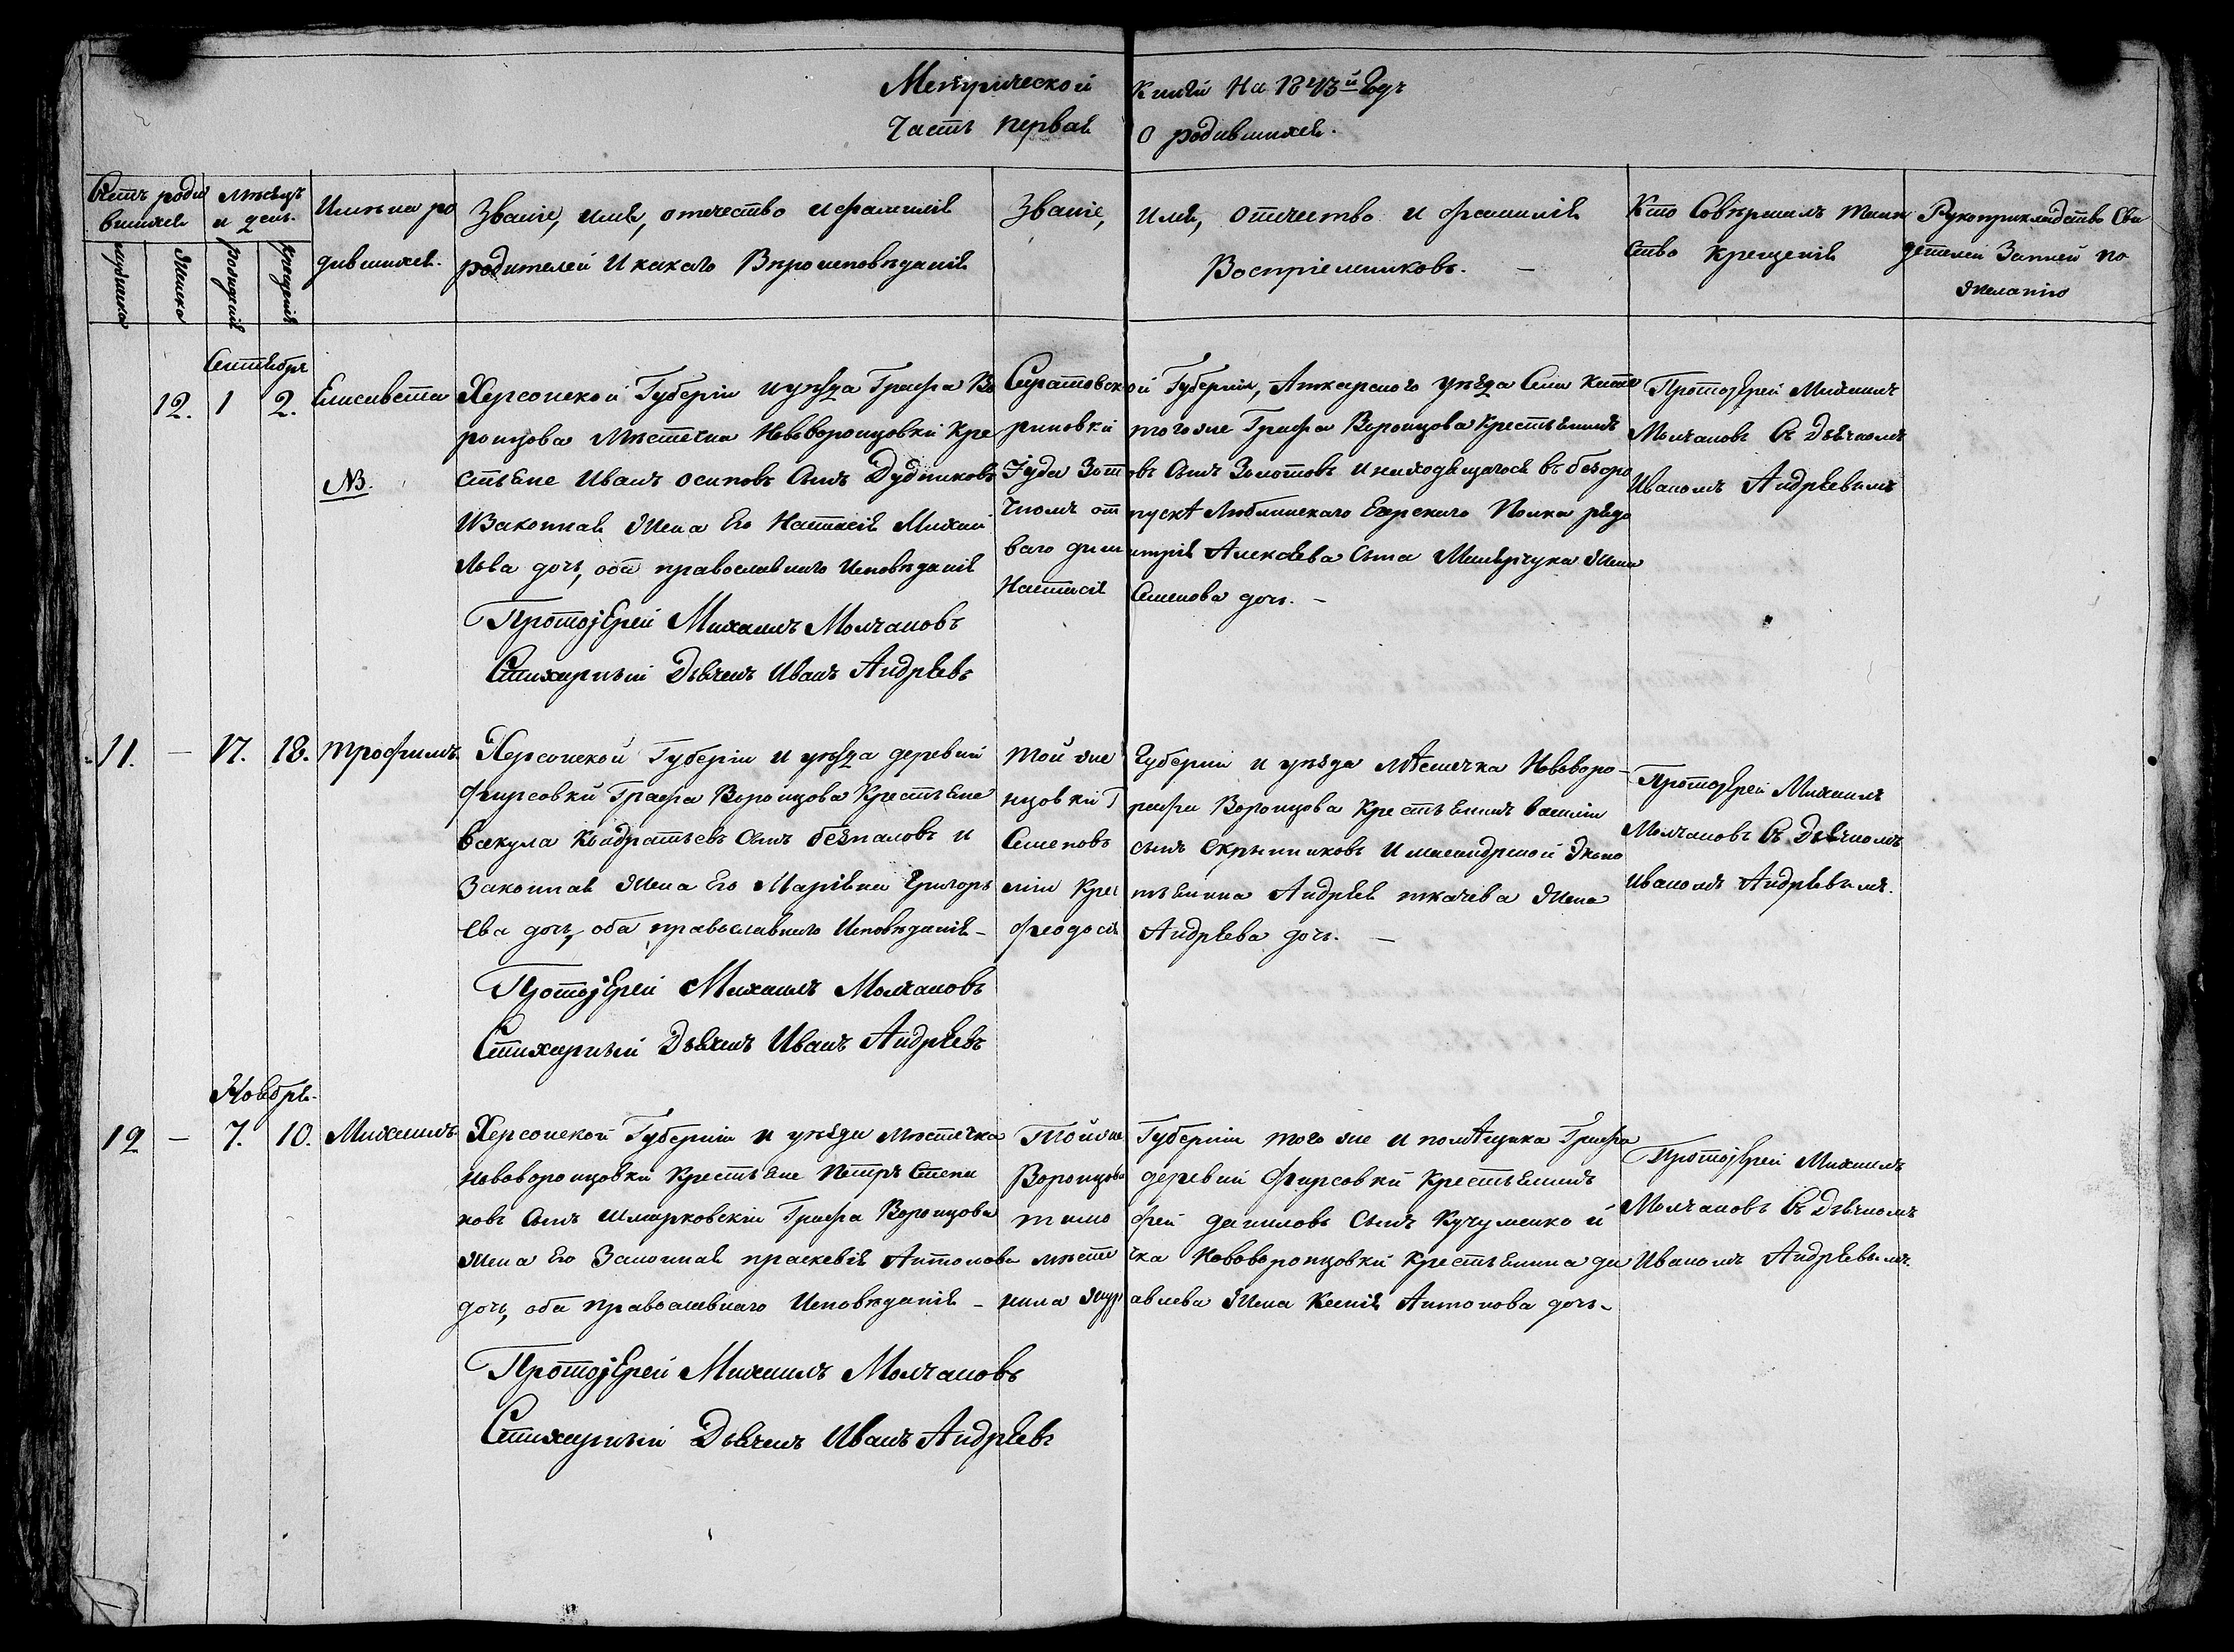 Метрической Книги на 1843й Годъ
Часть первая О родившихся.
Счетъ роди
вшихся
мужеска
женска
Мѣсяцъ
и день.
рожденія
крещенія
Имена ро
дившихся.
Званіе, имя, отечество и фамилія
родителей и какаго Вѣроисповѣданія
Званіе, имя, отечество и фамилія
Воспріемниковъ. —
Кто Совершалъ таин
ство крещенія
Рукоприкладство Сви
детелей Записи по
желанію
Сентябрь
12. 1 2.
Елисавета
NB.
Херсонской Губерніи и уѣзда Графа Во
ронцова Мѣстечка Нововоронцовки Кре
стьяне Иванъ осиповъ Сынъ Дудниковъ
И Законная жена Его Настасія Михаи
льва дочь, оба православнаго Исповѣданія
Протоjерей Михаилъ Молчановъ
Стихарный Дьячекъ Иванъ Андрѣевъ
Саратовской Губерніи, Аткарскаго уѣзда Села Кате
риновки тогоже Графа Воронцова Крестьянинъ
Іуда Зотовъ Сынъ Золотовъ и находящагося въ безсро
чномъ отпускѣ Люблинскаго Егерскаго Полка рядо
ваго димитрія Алексѣева Сына жена
Настасія Семенова дочь. —
Протоjерей Михаилъ
Молчановъ Съ Дьячкомъ
Иваномъ Андрѣевымъ
11. — 17. 18.
трофимъ.
Херсонской Губерніи и уѣзда деревни
Фирсовки Графа Воронцова Крестьяне
вакула Кондратьевъ Сынъ безпаловъ и
Законная жена Его Маріяна Григорь
ева дочь, оба православнаго Исповѣданія —
Протоjерей Михаилъ Молчановъ
Стихарный Дьячекъ Иванъ Андрѣевъ
той же Губерніи и уѣзда мѣстечка Нововоро-
нцовки Графа Воронцова Крестьянинъ василій
Семеновъ сынъ Скрынниковъ и Эконо
міи Крестьянина Андрѣя ткачева жена
феодосія Андрѣева дочь. —
Протоjерей Михаилъ
Молчановъ Съ Дьячкомъ
Иваномъ Андрѣевымъ.
Ноября.
12 — 7. 10.
Михаилъ.
Херсонской Губерніи и уѣзда мѣстечка
Нововоронцовки Крестьяне Петръ Степа
новъ Сынъ шмарковскій Графа Воронцова
жена Его Законная праскевія Антонова
дочь, оба православнаго Исповѣданія —
Протоjерей Михаилъ Молчановъ
Стихарный Дьячекъ Иванъ Андрѣевъ
Тойже Губерніи того же и помѣщика Графа
Воронцова деревни Фирсовки Крестьянинъ
тимофей даниловъ Сынъ Кучуменко и
мѣстечка Нововоронцовки Крестьянина да
нила журавлева жена Ксенія Антонова дочь —
Протоjерей Михаилъ
Молчановъ Съ Дьячкомъ
Иваномъ Андрѣевымъ.